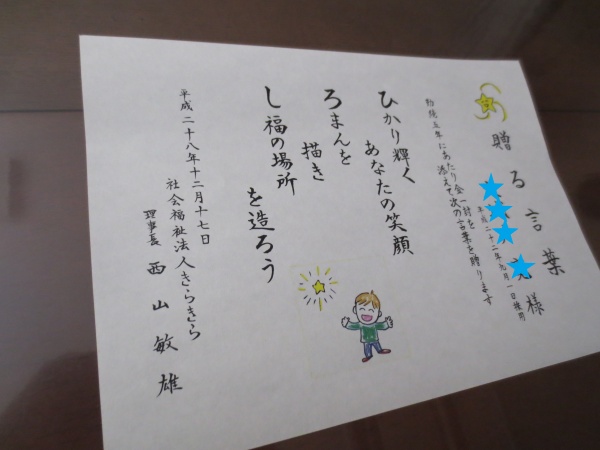 贈る言葉
様
平成二十二年九月一日採用
勤続五年にあたり金一封を
添えて次の言葉を贈ります
ひかり輝く
あなたの笑顔
ろまんを
描き
し福の場所
を造ろう
平成二十八年十二月十七日
社会福祉法人きらきら
理事長 西山敏雄